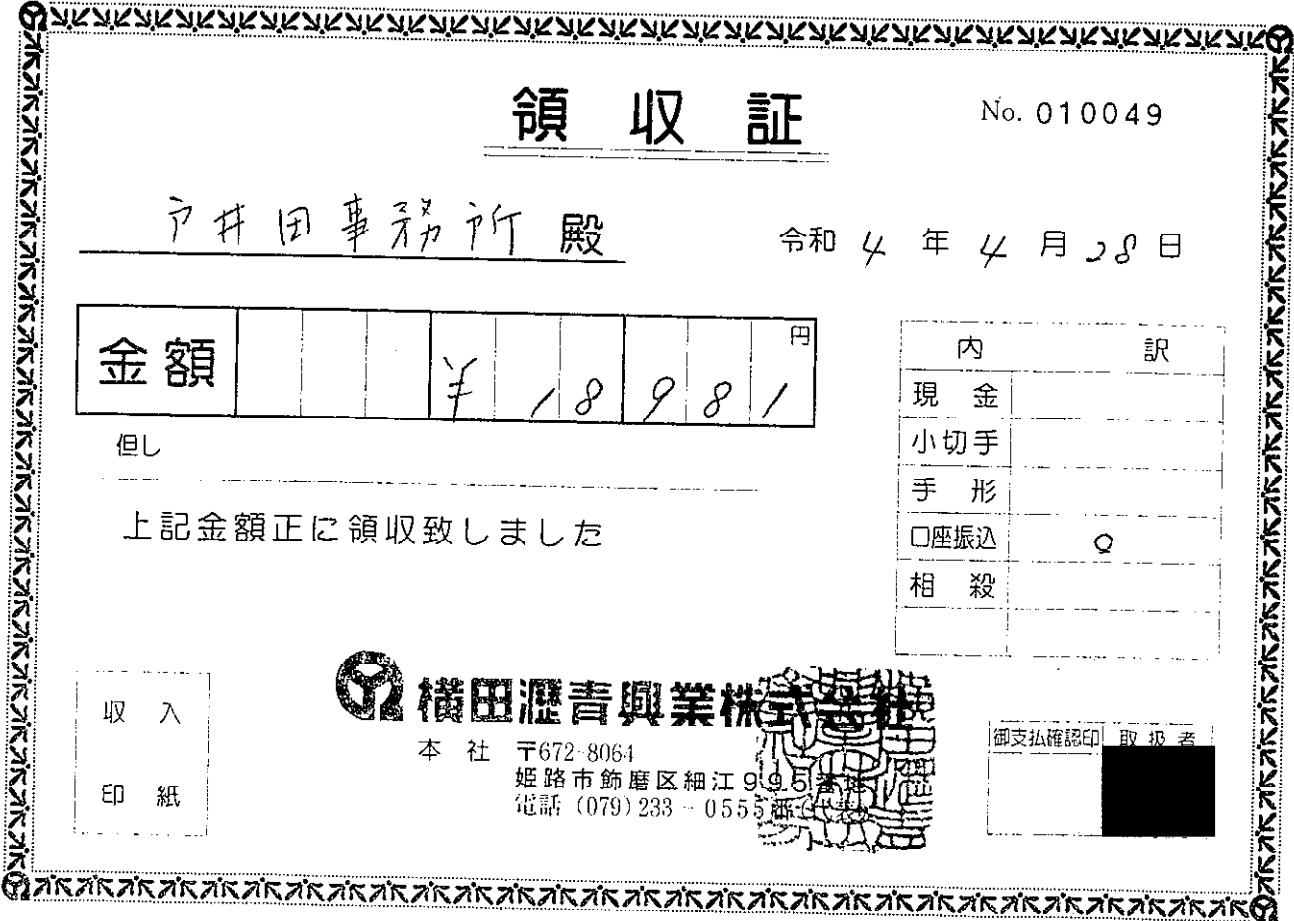 領収証
No. 010049
戸井田事務所 殿
令和 4 年 4 月 28 日
金額 ¥18981 円
但し
上記金額正に領収致しました
内訳
現金
小切手
手形
口座振込 ○
相殺
収入
印紙
横田瀝青興業株式会社
本社 〒672-8064
姫路市飾磨区細江995番地
電話 (079) 233-0555番(代表)
御支払確認印 取扱者